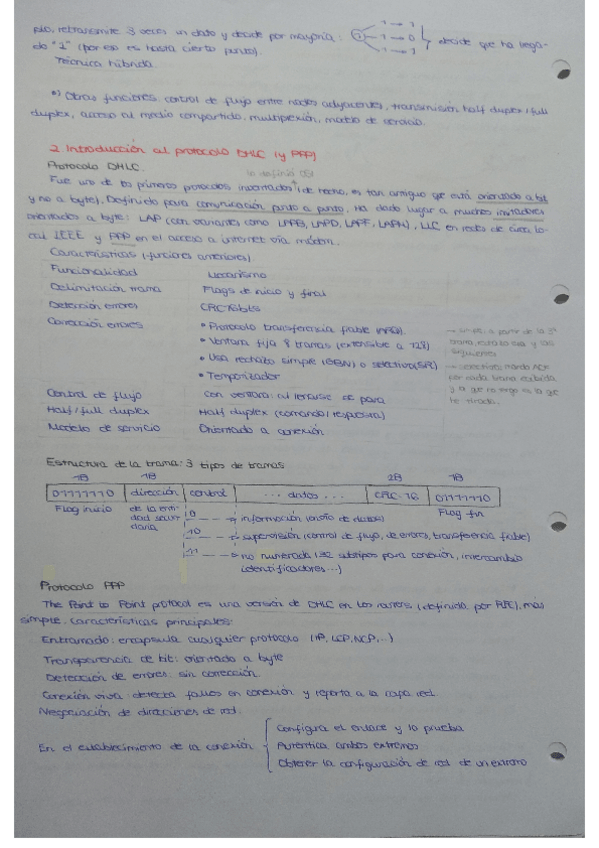 plo, retransmite 3 veces un dato y decide por mayoría: 1 1 → 1
1 → 0 decide que ha llega-
do "1" (por eso es hasta cierto punto). 1 → 1
Técnica híbrida.
•) Otras funciones: control de flujo entre nodos adyacentes, transmisión half duplex/full
duplex, acceso al medio compartido, multiplexión, modelo de servicio.
2. Introducción al protocolo DHLC (y PPP)
Protocolo DHLC.
lo definió OSI
Fue uno de los primeros protocolos inventados (de hecho, es tan antiguo que está orientado a bit
y no a byte). Definido para comunicación punto a punto. Ha dado lugar a muchos imitadores
orientados a byte: LAP (con variantes como LAPB, LAPD, LAPF, LAPM), LLC en redes de área lo-
cal IEEE y PPP en el acceso a internet vía módem.
Características (funciones anteriores)
Funcionalidad Mecanismo
Delimitación trama Flags de inicio y final
Detección errores CRC 16 bits
Corrección errores • Protocolo transferencia fiable (ARQ).
• Ventana fija 8 tramas (extensible a 128)
• Usa rechazo simple (GBN) o selectivo (SR)
• Temporizador
→ simple: a partir de la 3ª
trama, esta y las
siguientes
→ selectivo: mando ACK
por cada trama recibida
y la que no tengo es la que
he tirado.
Control de flujo Con ventana: al llenarse se para
Half/full duplex Half duplex (comando/respuesta)
Modelo de servicio Orientado a conexión
Estructura de la trama: 3 tipos de tramas
1B 1B 2B 1B
01111110 dirección control ... datos ... CRC-16 01111110
Flag inicio de la enti-
dad secun-
daria Flag fin
0 → información (envío de datos)
10 → supervisión (control de flujo, de errores, transferencia fiable)
11 → no numerada (32 subtipos para conexión, intercambio
identificadores...)
Protocolo PPP
The Point to Point protocol es una versión de DHLC en los routers (definida por RFC), más
simple. Características principales:
Entramado: encapsula cualquier protocolo (IP, LCP, NCP,...)
Transparencia de bit: orientado a byte
Detección de errores sin corrección.
Conexión viva: detecta fallos en conexión y reporta a la capa red.
Negociación de direcciones de red.
En el establecimiento de la conexión
Configura el enlace y lo prueba
Autentica ambos extremos
Obtener la configuración de red de un extremo